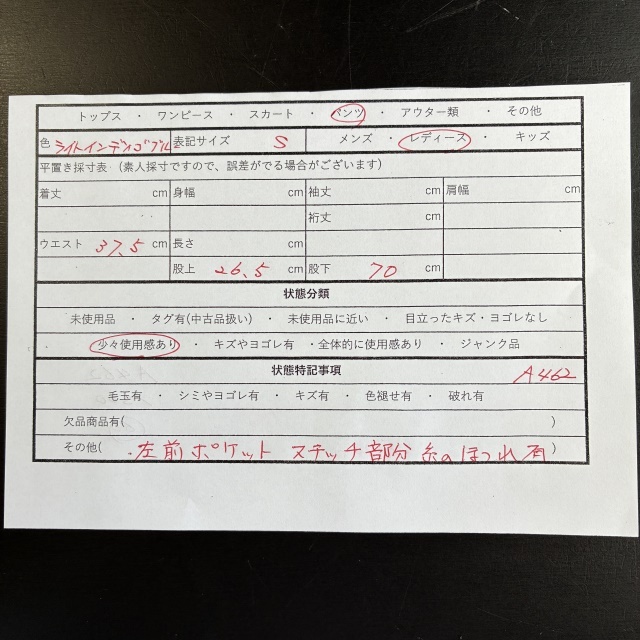 トップス ・ ワンピース ・ スカート ・ パンツ ・ アウター類 ・ その他
色 ライトインディゴブル 表記サイズ S メンズ ・ レディース ・ キッズ
平置き採寸表 (素人採寸ですので、誤差がでる場合がございます)
着丈 cm 身幅 cm 袖丈 cm 肩幅 cm
裄丈 cm
ウエスト 37.5 cm 長さ cm
股上 26.5 cm 股下 70 cm
状態分類
未使用品 ・ タグ有(中古品扱い) ・ 未使用品に近い ・ 目立ったキズ・ヨゴレなし
少々使用感あり ・ キズやヨゴレ有 ・全体的に使用感あり ・ ジャンク品
状態特記事項 A462
毛玉有 ・ シミやヨゴレ有 ・ キズ有 ・ 色褪せ有 ・ 破れ有
欠品商品有( )
その他( ・左前ポケット ステッチ部分 糸のほつれ有 )